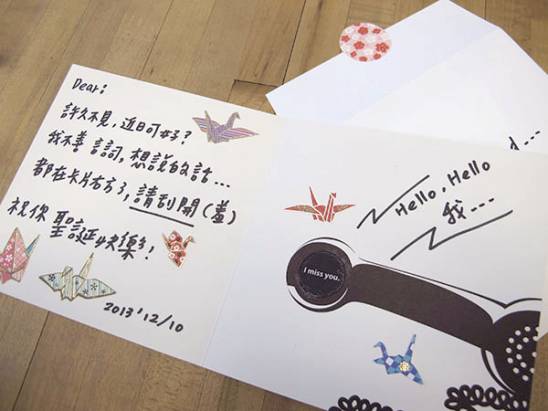 Dear:
許久不見, 近日可好?
我不善言詞, 想說的話...
都在卡片右方了, 請刮開(羞)
祝你 聖誕快樂!
2013'12/10
Hello, Hello
我...
I miss you.